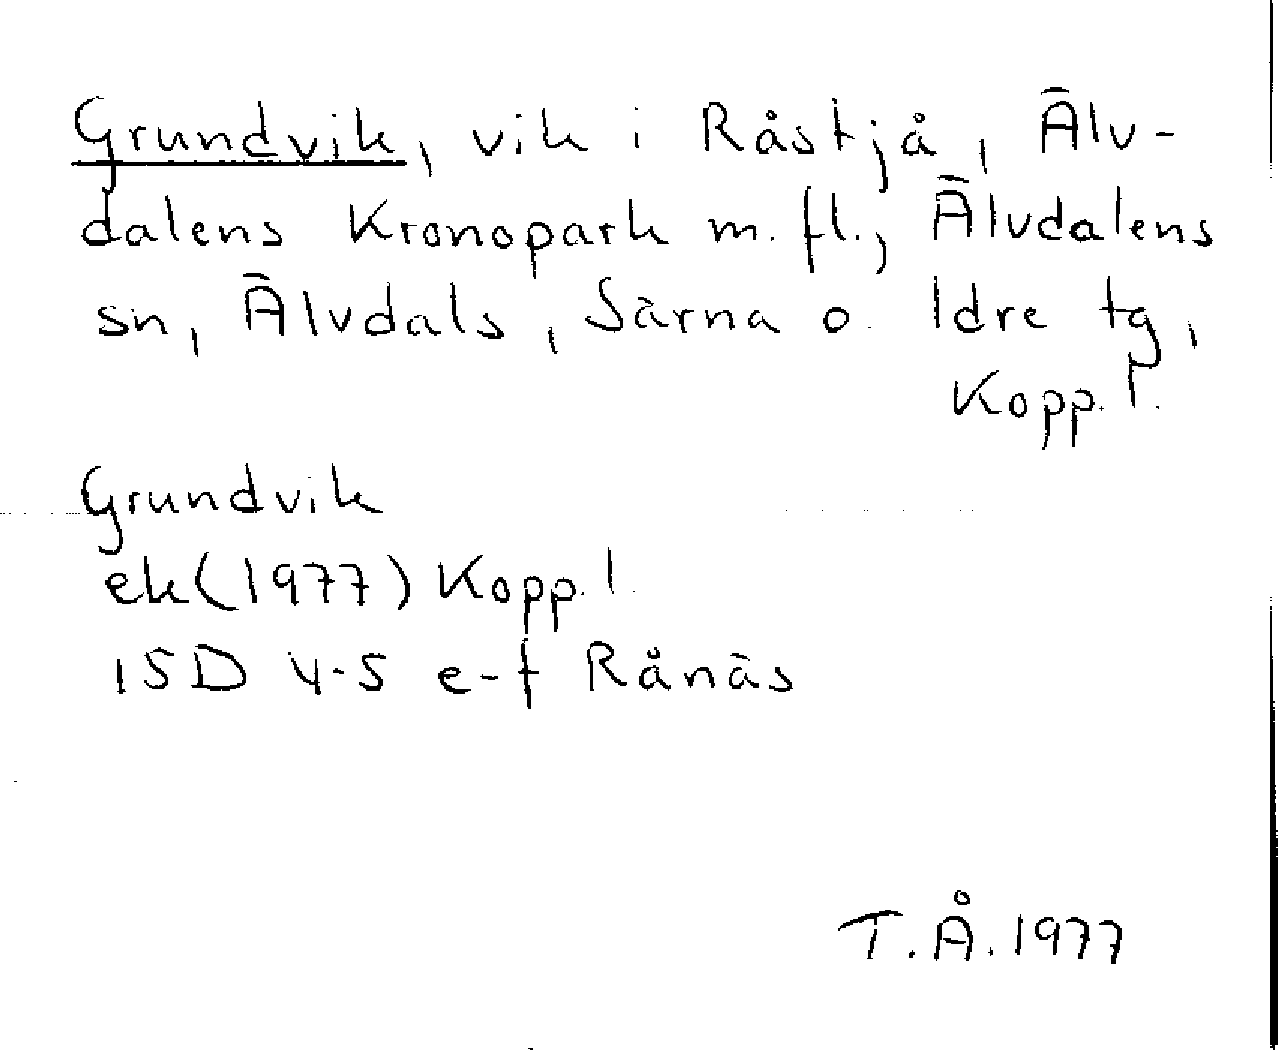 Grundvik, vik i Råstjå, Älv-
dalens Kronopark m. fl., Älvdalens
sn, Älvdals, Särna o. Idre tg,
Kopp. l.
Grundvik
ek (1977) Kopp. l.
15D 4-5 e-f Rånäs
T.Å. 1977